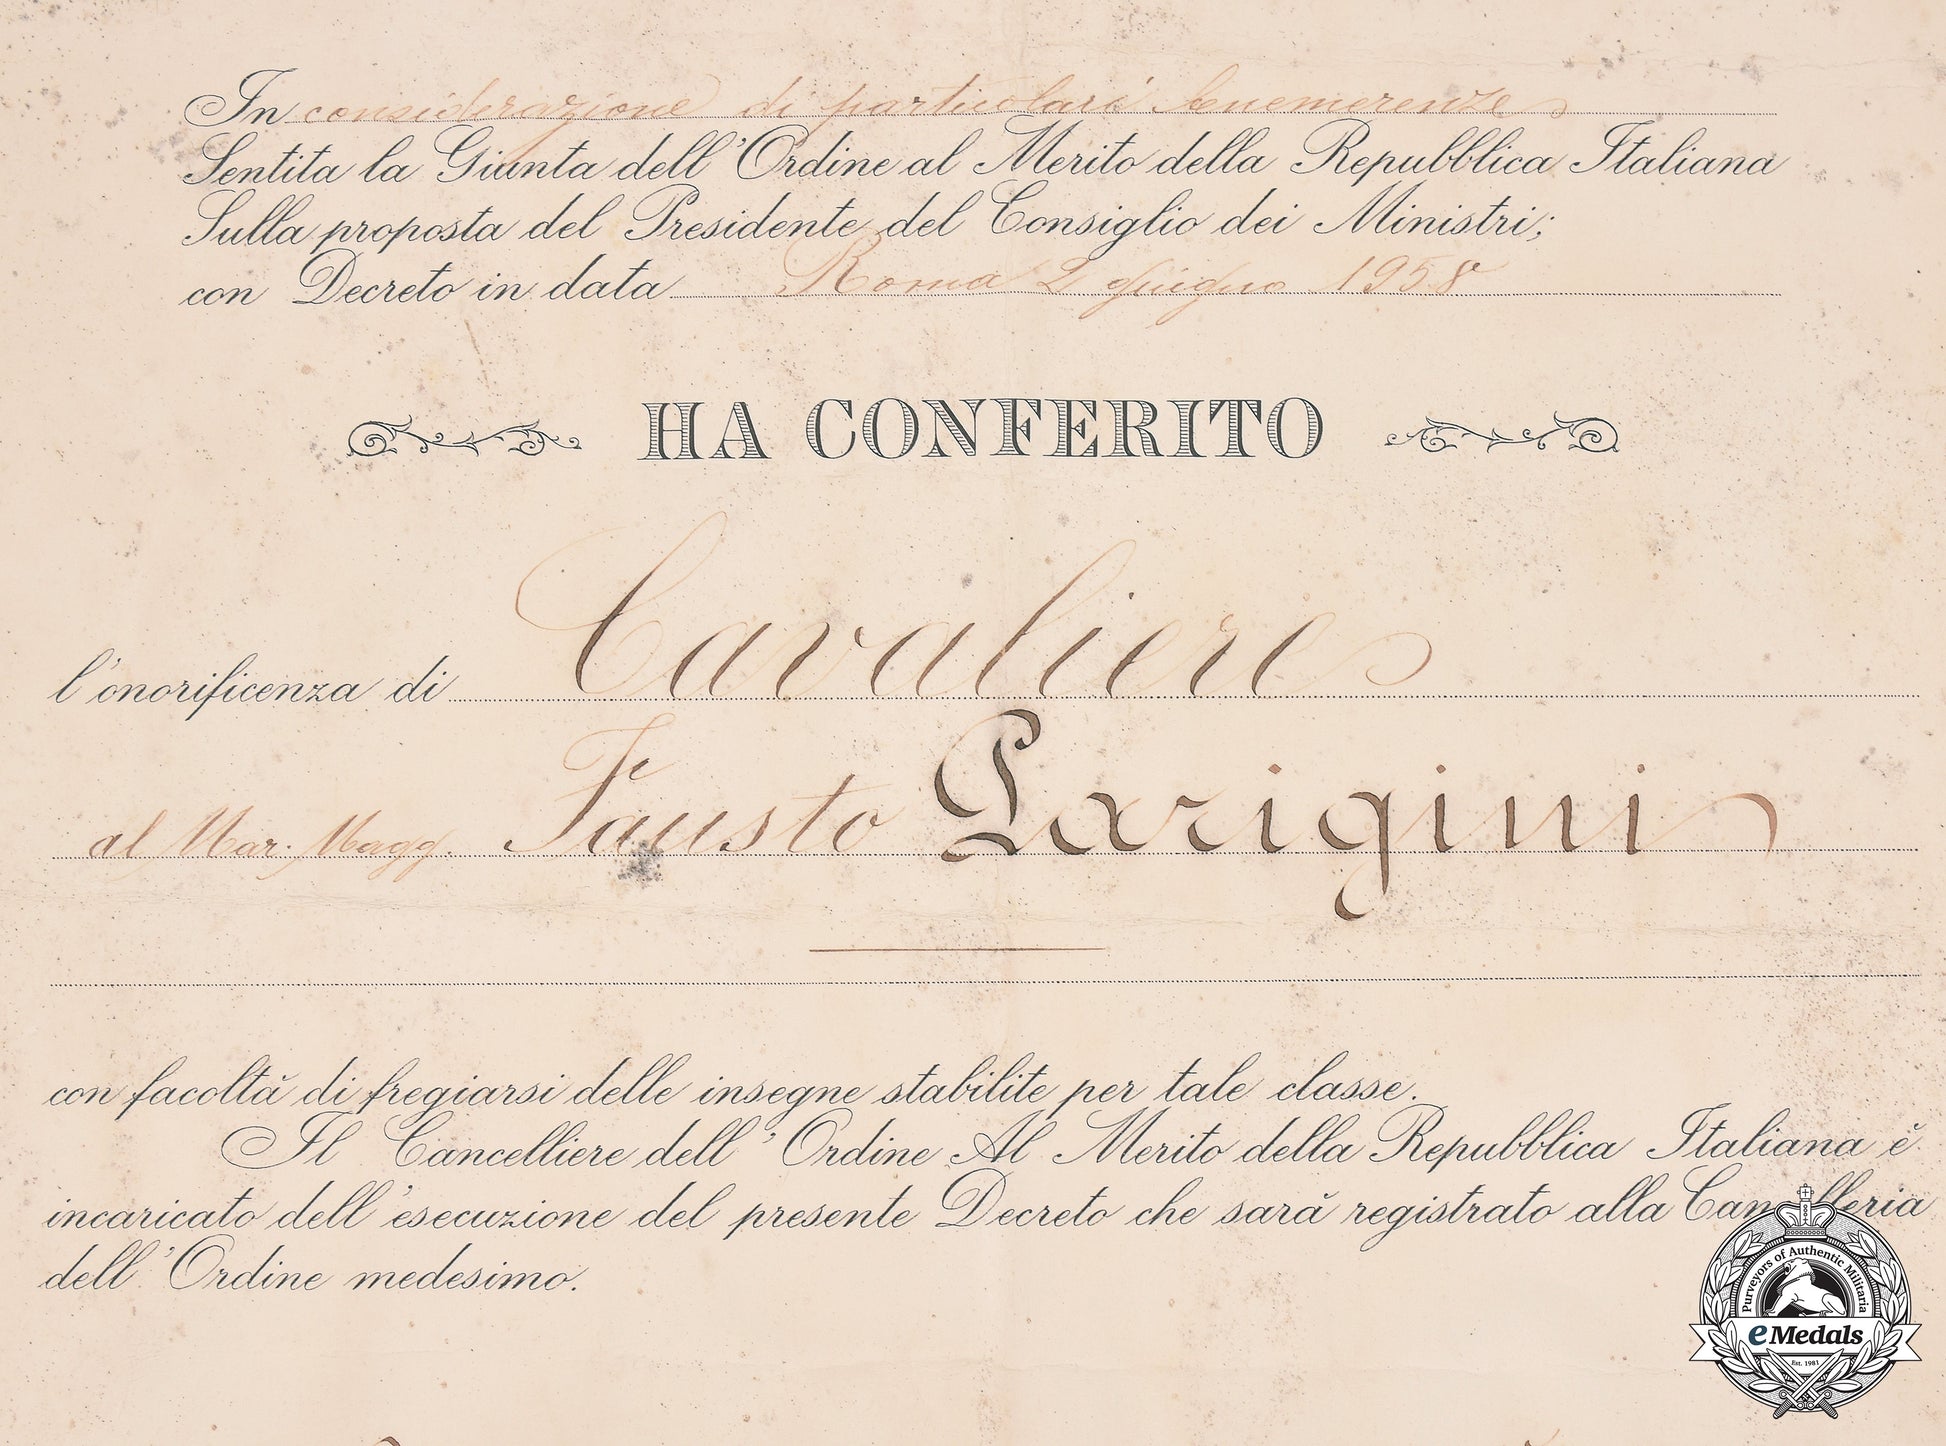 In considerazione di particolari benemerenze
Sentita la Giunta dell'Ordine al Merito della Repubblica Italiana
Sulla proposta del Presidente del Consiglio dei Ministri;
con Decreto in data Roma 2 giugno 1958
HA CONFERITO
l'onorificenza di Cavaliere
al Mar. Magg. Fausto Parigini
con facoltà di fregiarsi delle insegne stabilite per tale classe.
Il Cancelliere dell'Ordine Al Merito della Repubblica Italiana è
incaricato dell'esecuzione del presente Decreto che sarà registrato alla Cancelleria
dell'Ordine medesimo.
Purveyors of Authentic Militaria
eMedals
Est. 1983